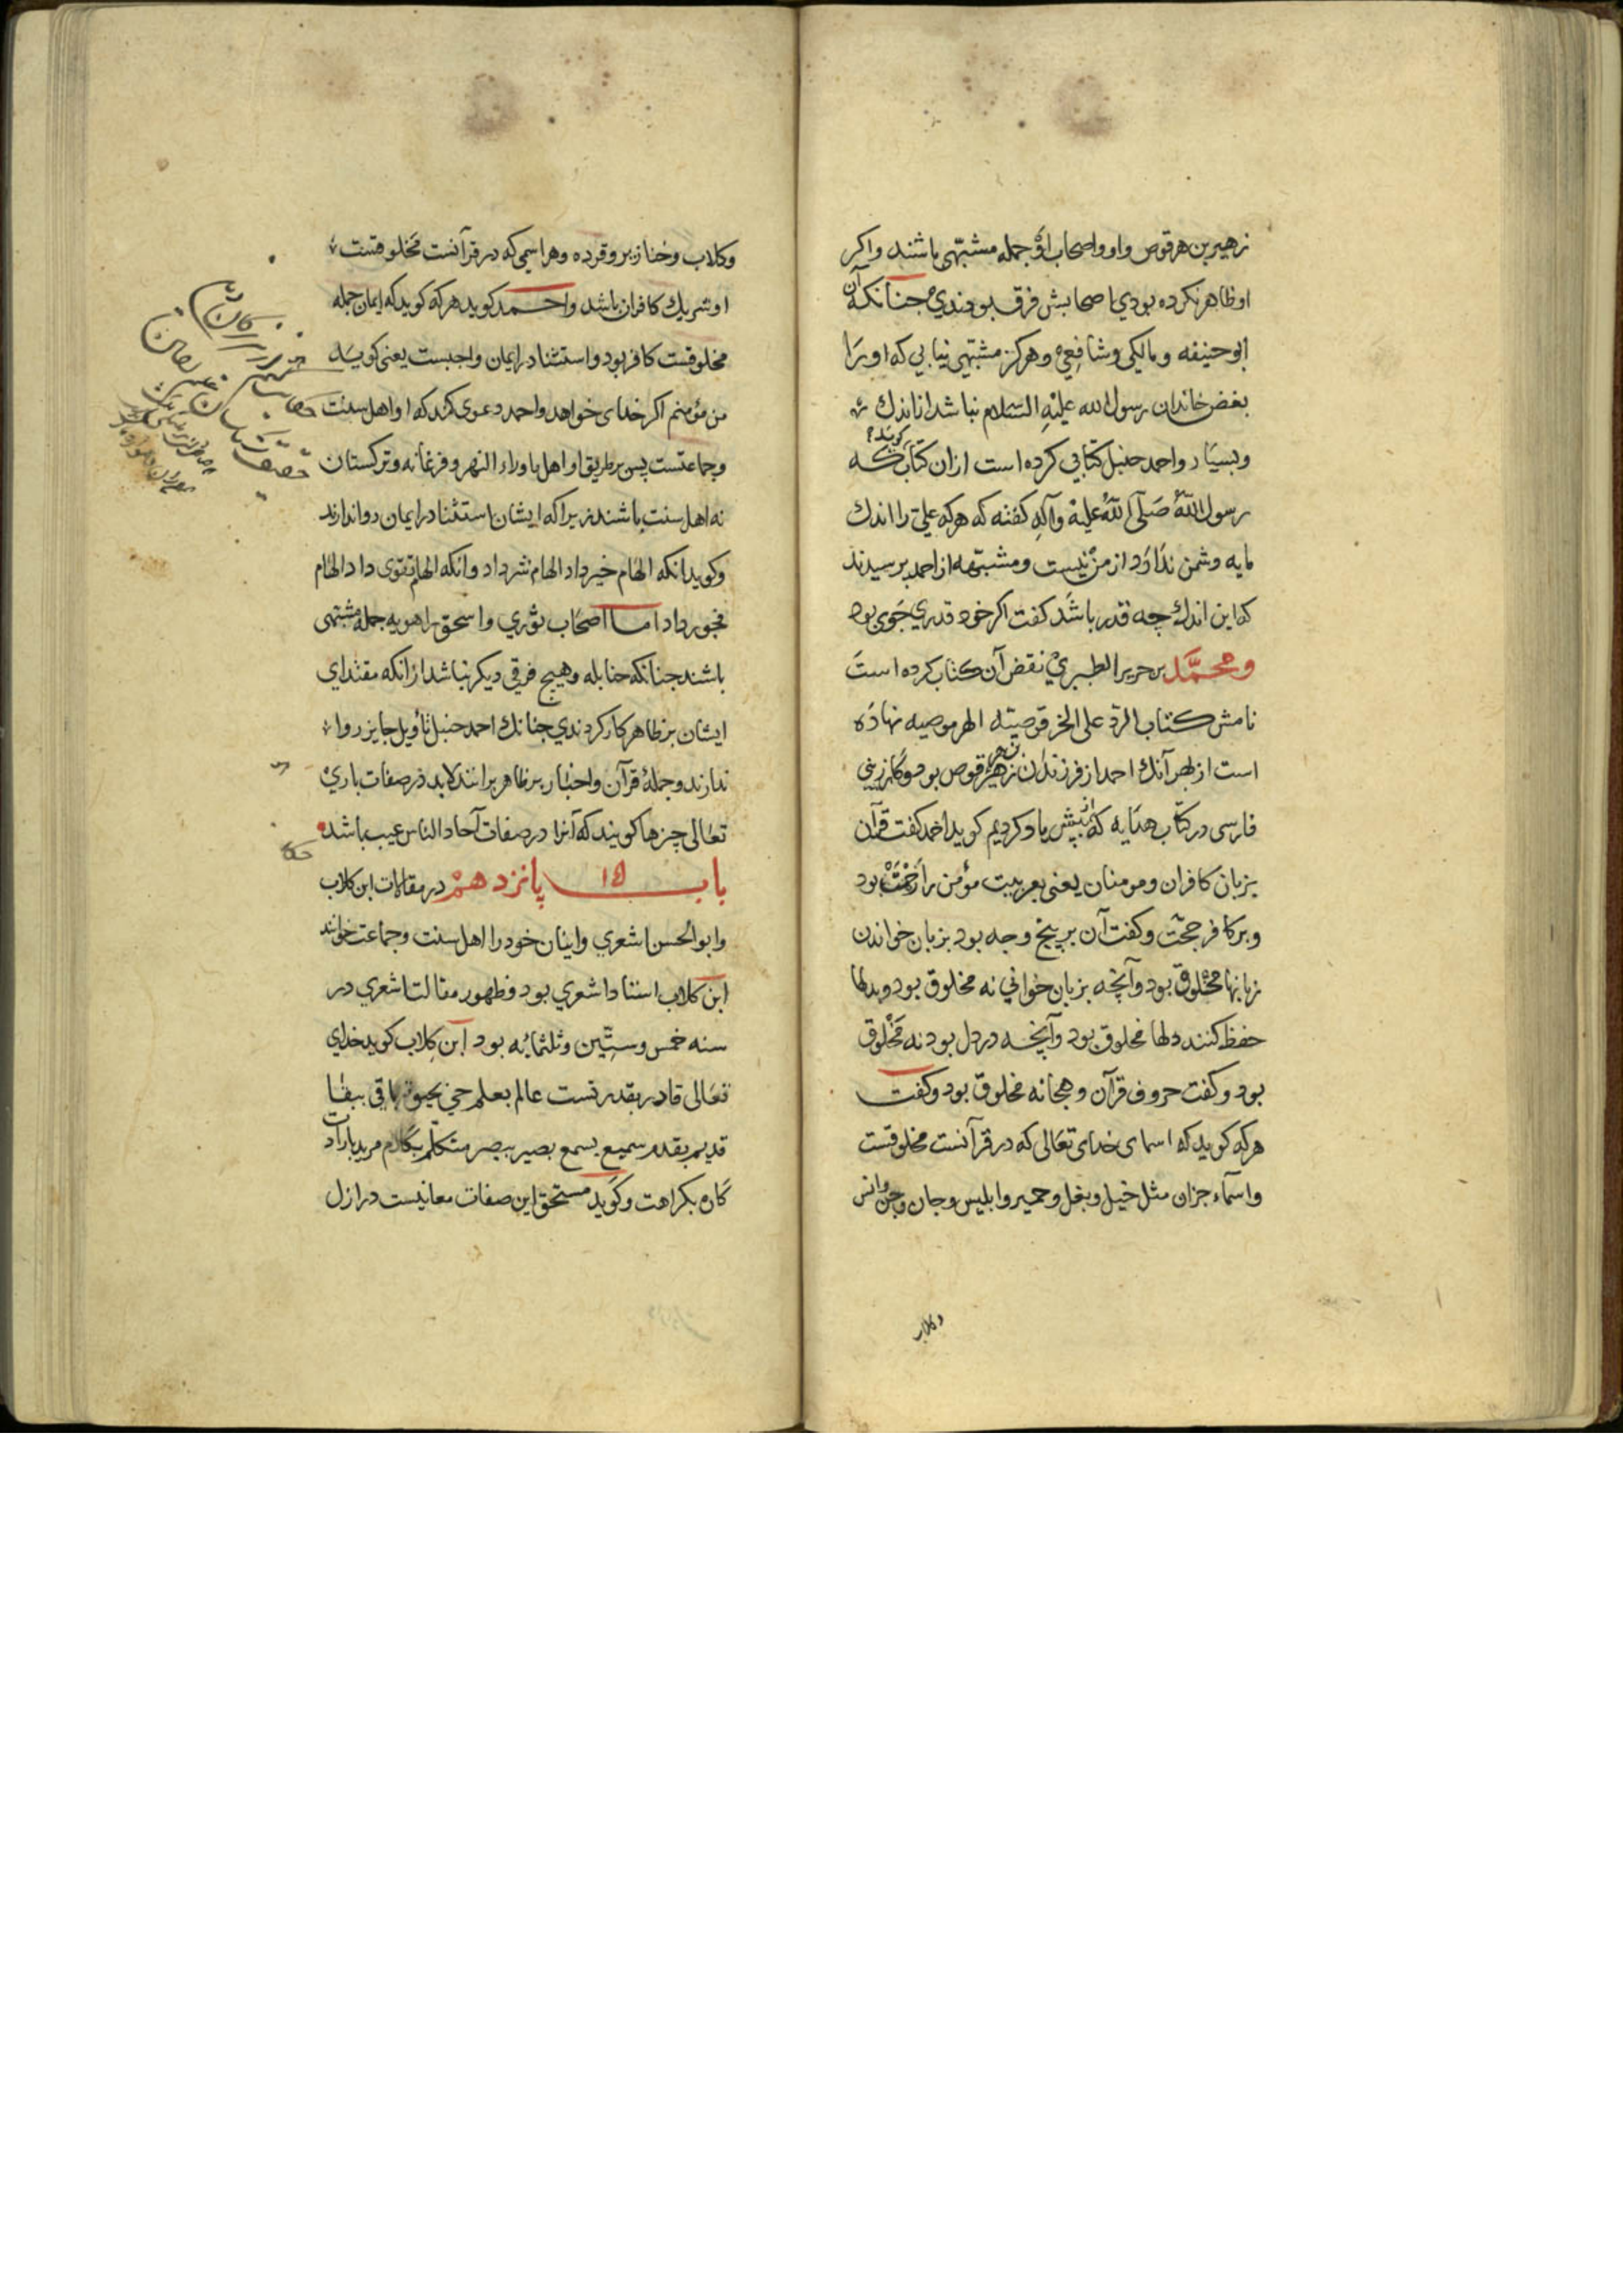 زهیر بن هرقوص واو واصحاب او جمله مشبّهی باشند واکر
او ظاهر نکرده بودی اصحابش فرق بودندی جنانکه آن
ابو حنیفه ومالکی وشافعی وهرکز مشبّهی نیابی که او را
بغض خاندان رسول الله علیه السلام نباشد اما اندك
وبسیار واحمد حنبل کتابی کرده است ازان کتاب کویند که
رسول الله صلّی الله علیه وآله کفته که هرکه علی را اندك
مایه دشمن ندارد از من نیست ومشبّهه از احمد برسیدند
که این اندك چه قدر باشد کفت اکر خود قدر جوی بود
ومحمّد بن جریر الطبری نقض آن کتاب کرده است
نامش کتاب الردّ علی الحرقوصیّه نهاده
است از بهر آنك احمد از فرزندان زهیر هرقوص بود وکازرینی
فارسی در کتاب هدایه که از بیش یاد کردیم کوید احمد کفت قرآن
بزبان کافران ومومنان یعنی بعربیت مؤمن را رحمت بود
وبر کافر حجّت وکفت آن بر پنج وجه بود بزبان خواندن
زبانها مخلوق بود وآنچه بزبان خوانی نه مخلوق بود وبدلها
حفظ کنند دلها مخلوق بود وآنچه در دل بود نه مخلوق
بود وکفت حروف قرآن وهجا نه مخلوق بود وکفت
هرکه کوید که اسمای خدای تعالی که در قرآنست مخلوقست
واسماء جزان مثل خیل وبغل وحمیر وابلیس وجان وجن وانس
وکلاب
وکلاب وخنازیر وقرده وهر اسمی که در قرآنست مخلوقست
او شریك کافران باشد واحمد کوید هرکه کوید که ایمان جمله
مخلوقست کافر بود واستثنا در ایمان واجبست یعنی کوید
من مؤمنم اکر خدای خواهد واحمد دعوی کند که او اهل سنت
وجماعتست پس بر طریق او اهل ماوراء النهر وفرغانه وترکستان
نه اهل سنت باشند زیرا که ایشان استثنا در ایمان روا ندارند
وکوید انکه الهام خیر داد الهام شر داد وانکه الهام تقوی داد الهام
فجور داد اما اصحاب ثوری واسحق راهویه جمله مشبّهی
باشند جنانکه حنابله وهیج فرقی دیکر نباشد از انکه مقتدای
ایشان بر ظاهر کار کردندی جنانك احمد حنبل تأویل جایز روا
ندارند وجملهٔ قرآن واخبار بر ظاهر برانند لابد در صفات باری
تعالی چیزها کویند که آنرا در صفات آحاد الناس عیب باشد
باب ١٥ پانزدهم در مقالات ابن کلاب
وابو الحسن اشعری واینان خود را اهل سنت وجماعت خوانند
ابن کلاب استاد اشعری بود وظهور مقالت اشعری در
سنه خمس وستّین وثلثمائه بود ابن کلاب کوید خدای
تعالی قادر بقدرتست عالم بعلم حی بحیوة باقی ببقا
قدیم بقدم سمیع بسمع بصیر ببصر متکلّم بکلام مرید بارادت
کاره بکراهت وکوید مستحق این صفات معانیست در ازل